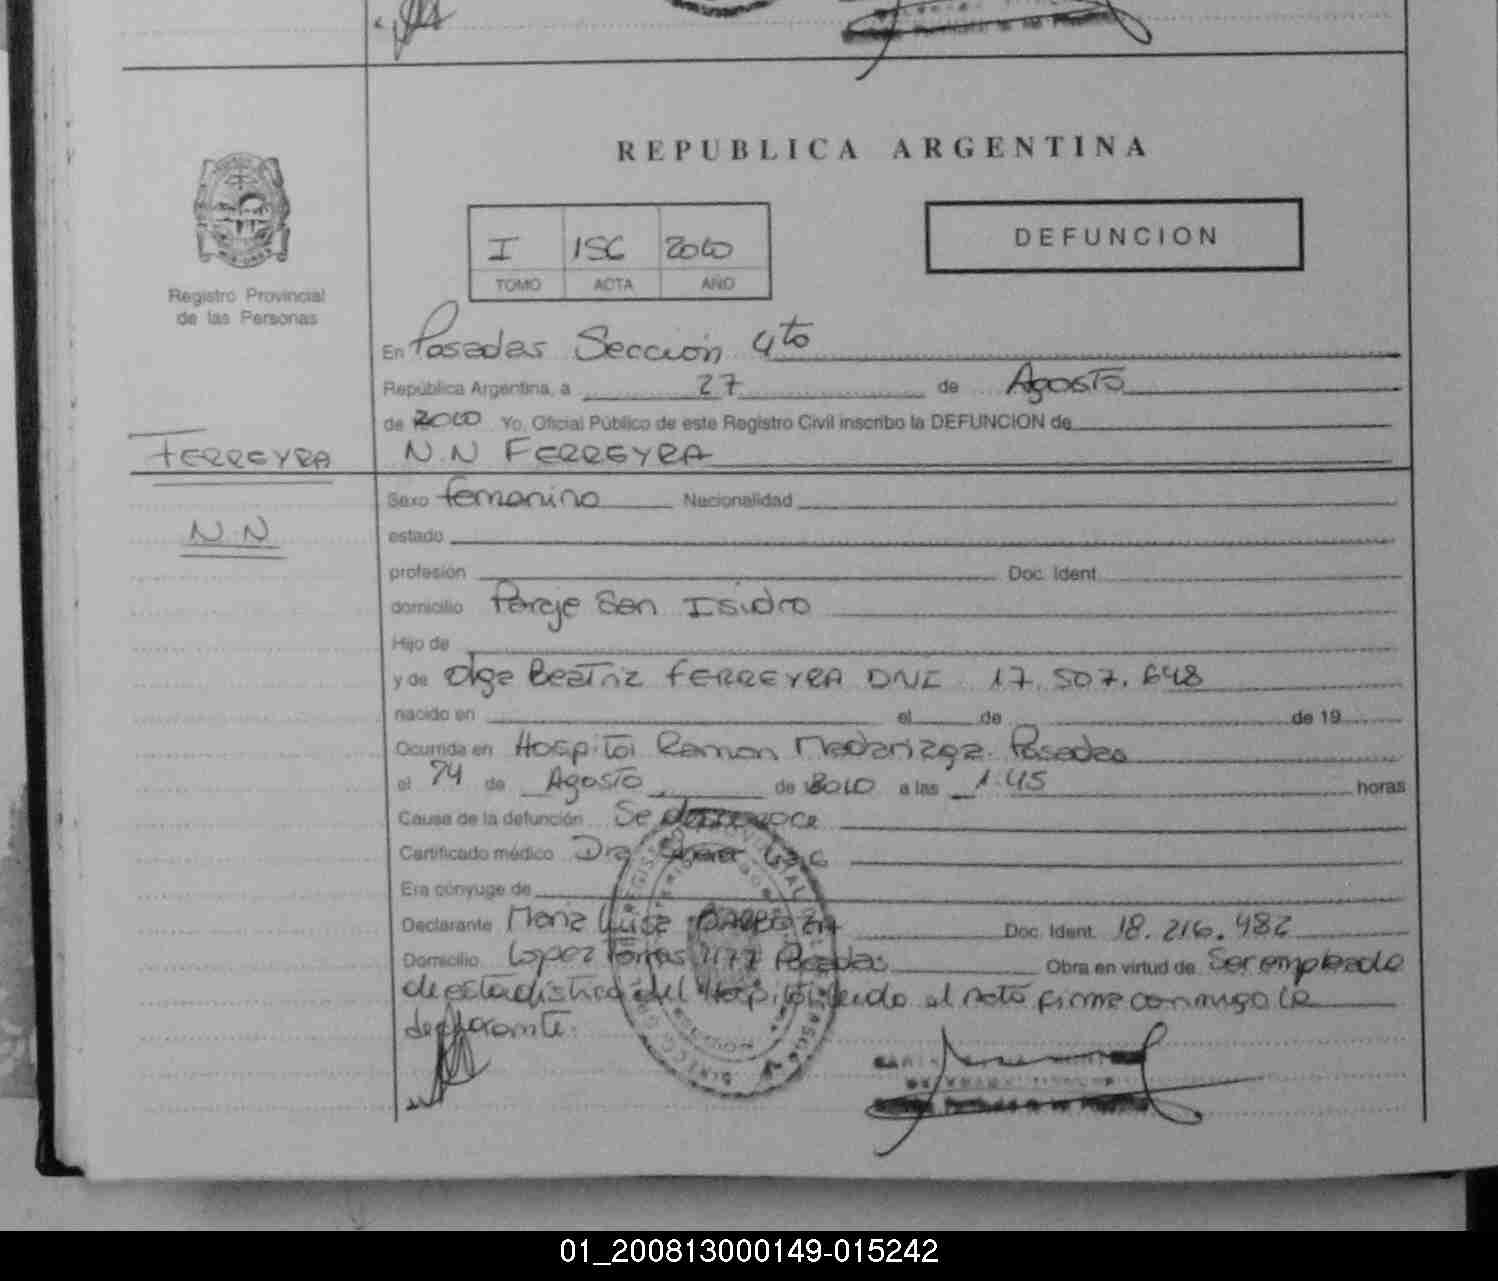 REPUBLICA ARGENTINA
I 156 2010
TOMO ACTA AÑO
DEFUNCION
Registro Provincial
de las Personas
En Posadas Sección 4to
República Argentina, a 27 de Agosto
de 2010 Yo, Oficial Público de este Registro Civil inscribo la DEFUNCION de
FERREYRA
N.N FERREYRA
N.N
Sexo femenino Nacionalidad
estado
profesión Doc. Ident.
domicilio Paraje San Isidro
Hijo de
y de Olga Beatriz FERREYRA DNI 17.507.648
nacido en el de de 19
Ocurrida en Hospital Ramon Madariaga. Posadas
el de Agosto de 2010 a las 1.45 horas
Causa de la defunción Se desconoce
Certificado médico Dra
Era cónyuge de
Declarante Maria Luisa BARBOZA Doc. Ident. 18.216.482
Domicilio Lopez Torres Posadas Obra en virtud de Ser empleada
de estadistica del Hospital leido el acta firma conmigo la
declarante.
01_200813000149-015242